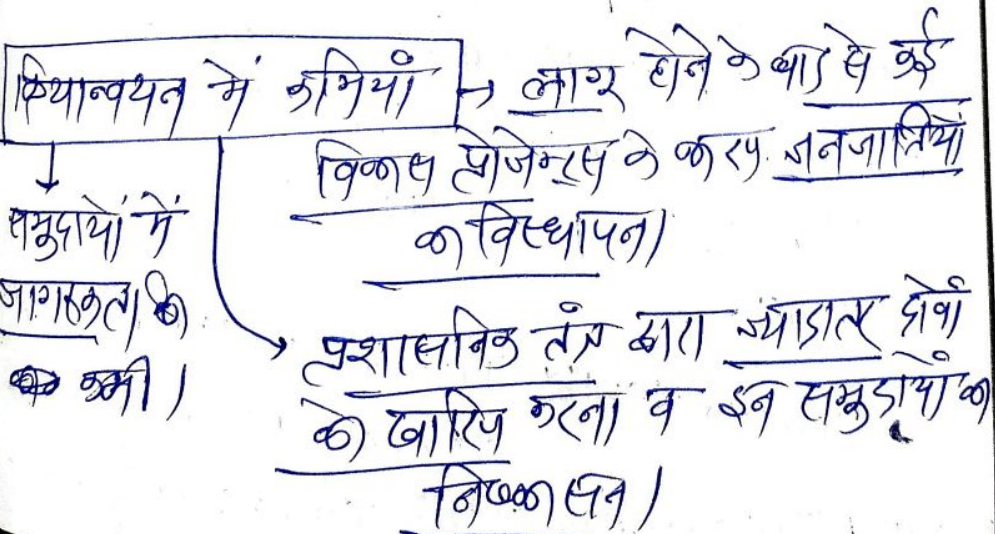 क्रियान्वयन में कमियां → लागू होने के बाद से कई
विकास प्रोजेक्ट्स के कारण जनजातियों
का विस्थापन।
समुदायों में
जागरूकता की
कमी।
प्रशासनिक तंत्र द्वारा ज्यादातर दावों
को खारिज करना व इन समुदायों का
निष्कासन।